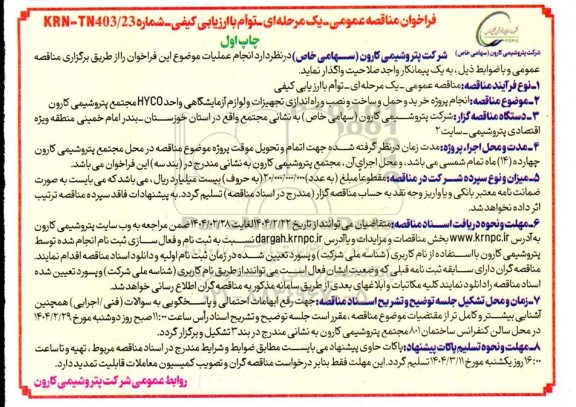 فراخوان مناقصه عمومی_یک مرحله‌ای_توأم با ارزیابی کیفی_شماره KRN-TN403/23
چاپ اول
شرکت پتروشیمی کارون (سهامی خاص)
شرکت پتروشیمی کارون (سهامی خاص) درنظردارد انجام عملیات موضوع این فراخوان را از طریق برگزاری مناقصه
عمومی و با ضوابط ذیل، به یک پیمانکار واجد صلاحیت واگذار نماید.
۱_نوع فرآیند مناقصه: مناقصه عمومی_یک مرحله‌ای_توأم با ارزیابی کیفی
۲_موضوع مناقصه: انجام پروژه خرید و حمل و ساخت و نصب و راه اندازی تجهیزات و لوازم آزمایشگاهی واحد HYCO مجتمع پتروشیمی کارون
۳_دستگاه مناقصه گزار: شرکت پتروشیمی کارون (سهامی خاص) به نشانی مجتمع واقع در استان خوزستان_بندر امام خمینی منطقه ویژه
اقتصادی پتروشیمی_سایت ۲
۴_مدت و محل اجراء پروژه: مدت زمان در نظر گرفته شده جهت اتمام و تحویل موقت پروژه موضوع مناقصه در محل مجتمع پتروشیمی کارون
چهارده (۱۴) ماه تمام شمسی می باشد. و محل اجرای آن، مجتمع پتروشیمی کارون به نشانی مندرج در (بند سه) این فراخوان می باشد.
۵_میزان و نوع سپرده شرکت در مناقصه: مقطوعا مبلغ (به عدد) ۲۰/۰۰۰/۰۰۰/۰۰۰ (به حروف) بیست میلیارد ریال، می باشد که می بایست به صورت
ضمانت نامه معتبر بانکی و یا واریز وجه نقد به حساب مناقصه گزار (مندرج در اسناد مناقصه) تسلیم گردد. به پیشنهادات فاقد سپرده مناقصه ترتیب
اثر داده نخواهد شد.
۶_مهلت و نحوه دریافت اسناد مناقصه: متقاضیان می توانند از تاریخ ۱۴۰۴/۲/۲۲ لغایت ۱۴۰۴/۰۲/۲۸ ضمن مراجعه به وب سایت پتروشیمی کارون
به آدرس www.krnpc.ir بخش مناقصات و مزایدات و یا آدرس dargah.krnpc.ir نسبت به ثبت نام و فعال سازی ثبت نام انجام شده توسط
پتروشیمی کارون با استفاده از نام کاربری (شناسه ملی شرکت) و پسورد تعیین شده در زمان ثبت نام اولیه و دانلود اسناد مناقصه اقدام نمایند.
مناقصه گران دارای سابقه ثبت نامه قبلی که وضعیت ایشان فعال است می توانند از طریق نام کاربری (شناسه ملی شرکت) و پسورد تعیین شده
اسناد مناقصه را دانلود نمایند کلیه مکاتبات و ابلاغهای بعدی از طریق سامانه مذکور به مناقصه گران اطلاع رسانی خواهد شد.
۷_زمان و محل تشکیل جلسه توضیح و تشریح اسناد مناقصه: جهت رفع ابهامات احتمالی و پاسخگویی به سوالات (فنی/اجرایی) همچنین
آشنایی بیشتر و کامل تر از مقتضیات موضوع مناقصه، مقرر است جلسه توضیح و تشریح اسناد رأس ساعت ۱۱:۰۰ صبح روز دوشنبه مورخ ۱۴۰۴/۲/۲۹
در محل سالن کنفرانس ساختمان ۸۰۱ مجتمع پتروشیمی کارون به نشانی مندرج در بند ۳ تشکیل و برگزار گردد.
۸_مهلت و نحوه تسلیم پاکات پیشنهاد: پاکات حاوی پیشنهاد می بایست مطابق ضوابط و شرایط مندرج در اسناد مناقصه مربوط، تهیه و تا ساعت
۱۶:۰۰ روز یکشنبه مورخ ۱۴۰۴/۳/۱۱ تسلیم گردد. این مهلت فقط بنابر درخواست مناقصه گران و تصویب کمیسیون معاملات قابلیت تمدید دارد.
روابط عمومی شرکت پتروشیمی کارون